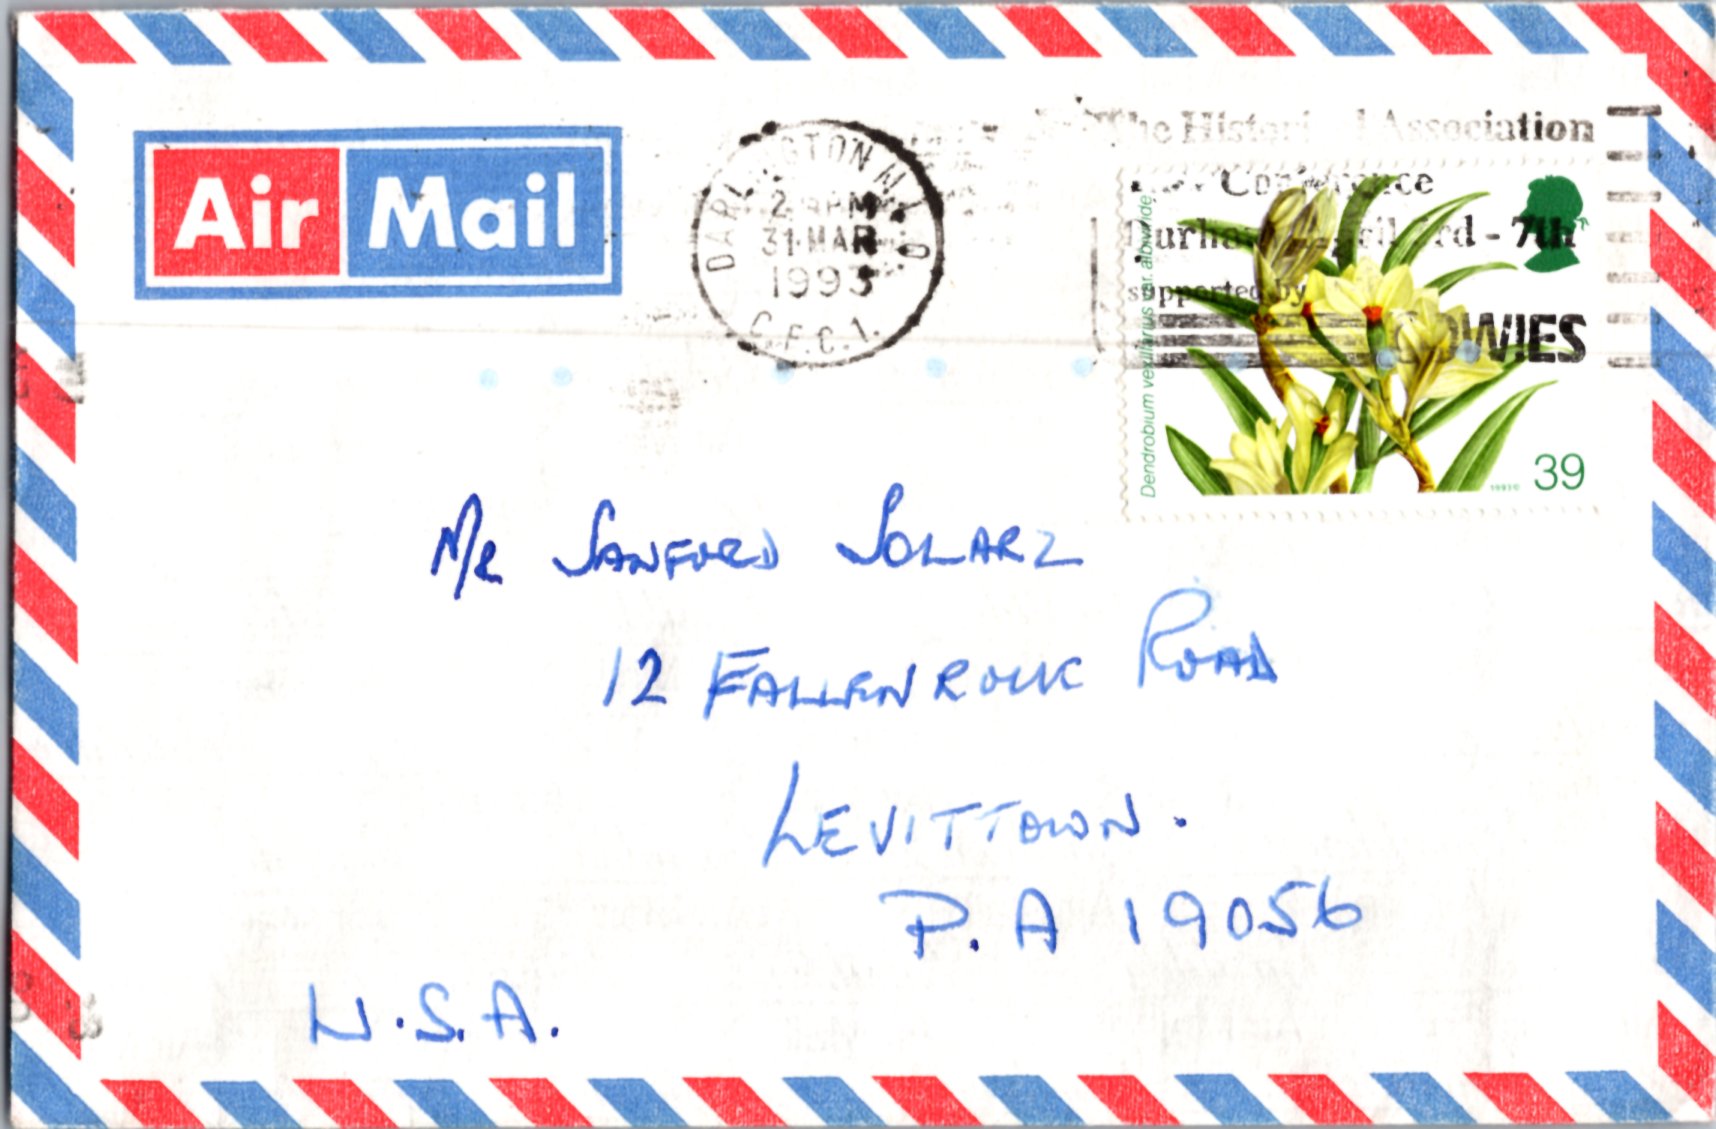 Air Mail
DARLINGTON M.L.O
2 PM
31 MAR
1993
C.F.C.1.
The Historical Association
Conference
Durham April 3rd - 7th
supported by
COWIES
Dendrobium vexillarius var. albiviride
1993
39
Mr SANFORD SOLARZ
12 FALLENROCK ROAD
LEVITTOWN.
P.A 19056
U.S.A.